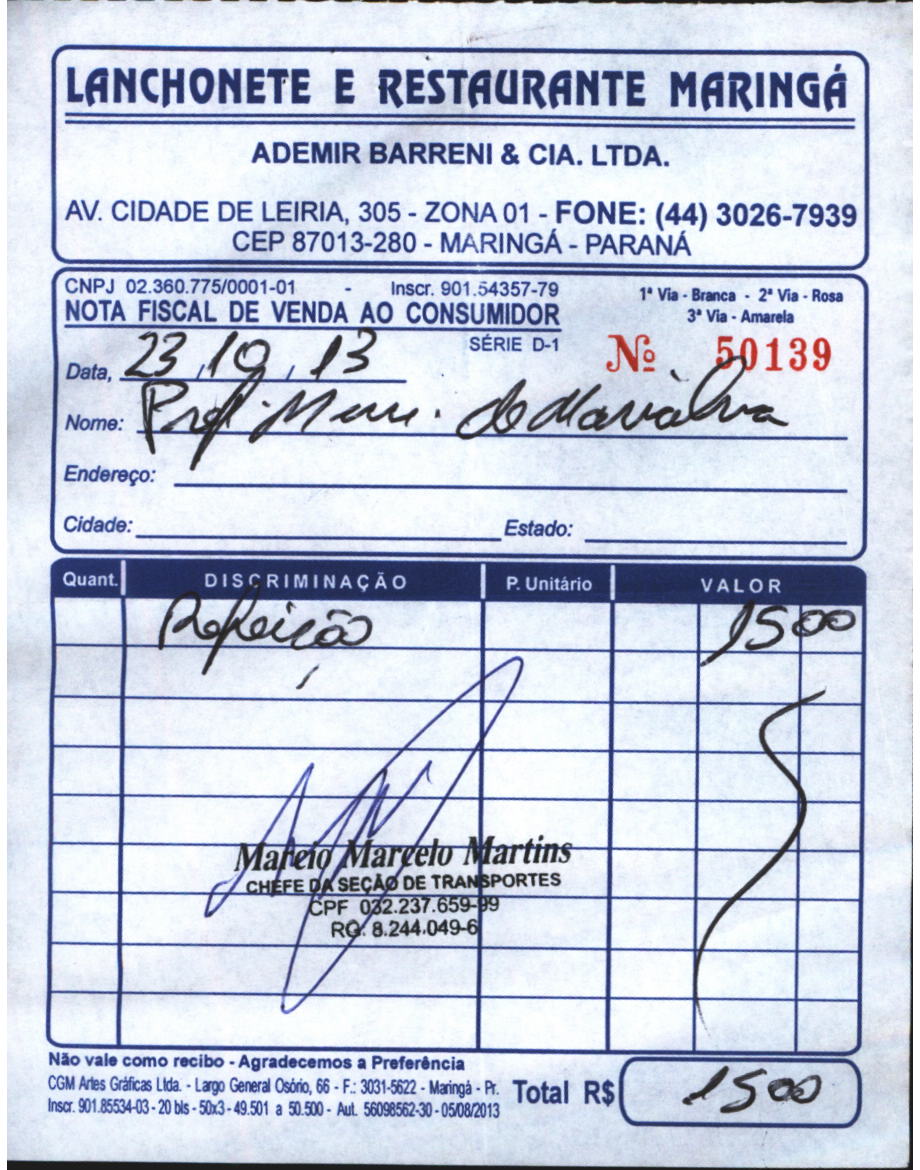 LANCHONETE E RESTAURANTE MARINGÁ
ADEMIR BARRENI & CIA. LTDA.
AV. CIDADE DE LEIRIA, 305 - ZONA 01 - FONE: (44) 3026-7939
CEP 87013-280 - MARINGÁ - PARANÁ
CNPJ 02.360.775/0001-01 - Inscr. 901.54357-79
NOTA FISCAL DE VENDA AO CONSUMIDOR
SÉRIE D-1
1ª Via - Branca - 2ª Via - Rosa
3ª Via - Amarela
Nº 50139
Data, 23, 10, 13
Nome: Pref. Mun. de Marialva
Endereço:
Cidade: Estado:
Quant. DISCRIMINAÇÃO P. Unitário VALOR
Refeição 1500
Marcio Marcelo Martins
CHEFE DA SEÇÃO DE TRANSPORTES
CPF 032.237.659-99
RG. 8.244.049-6
Não vale como recibo - Agradecemos a Preferência
CGM Artes Gráficas Ltda. - Largo General Osório, 66 - F.: 3031-5622 - Maringá - Pr.
Inscr. 901.85534-03 - 20 bls - 50x3 - 49.501 a 50.500 - Aut. 56098562-30 - 05/08/2013
Total R$ 1500